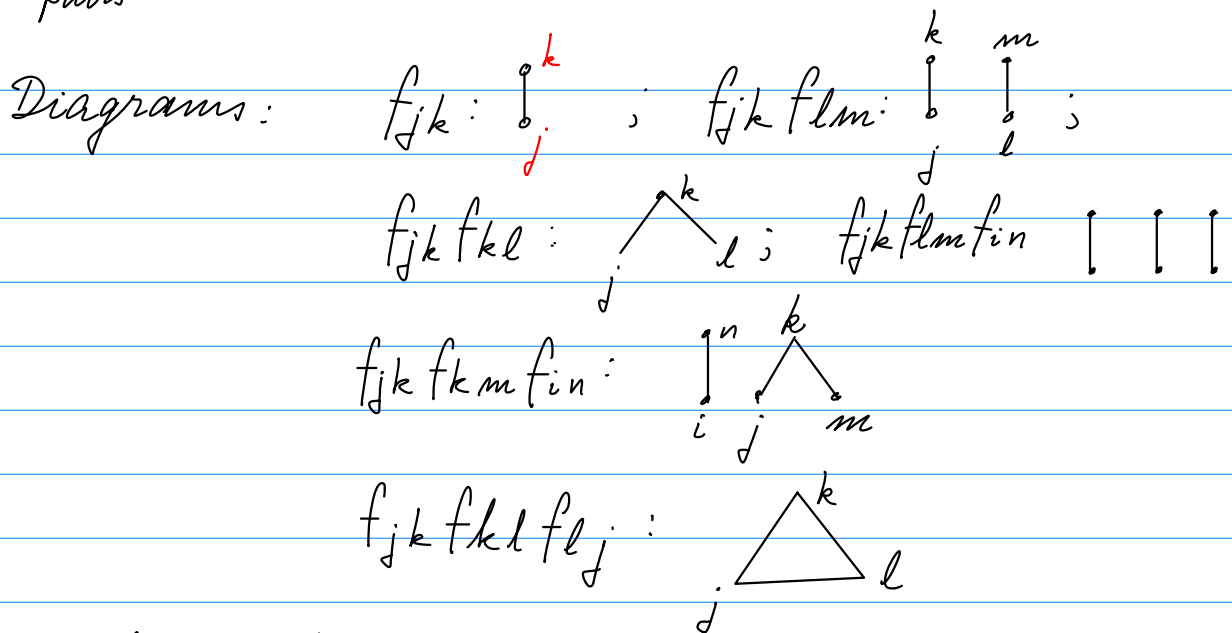 pairs
Diagrams: fjk: k j ; fjk flm: k m j l ;
fjk fkl : k j l ; fjk flm fin
fjk fkm fin : n k i j m
fjk fkl flj : k j l